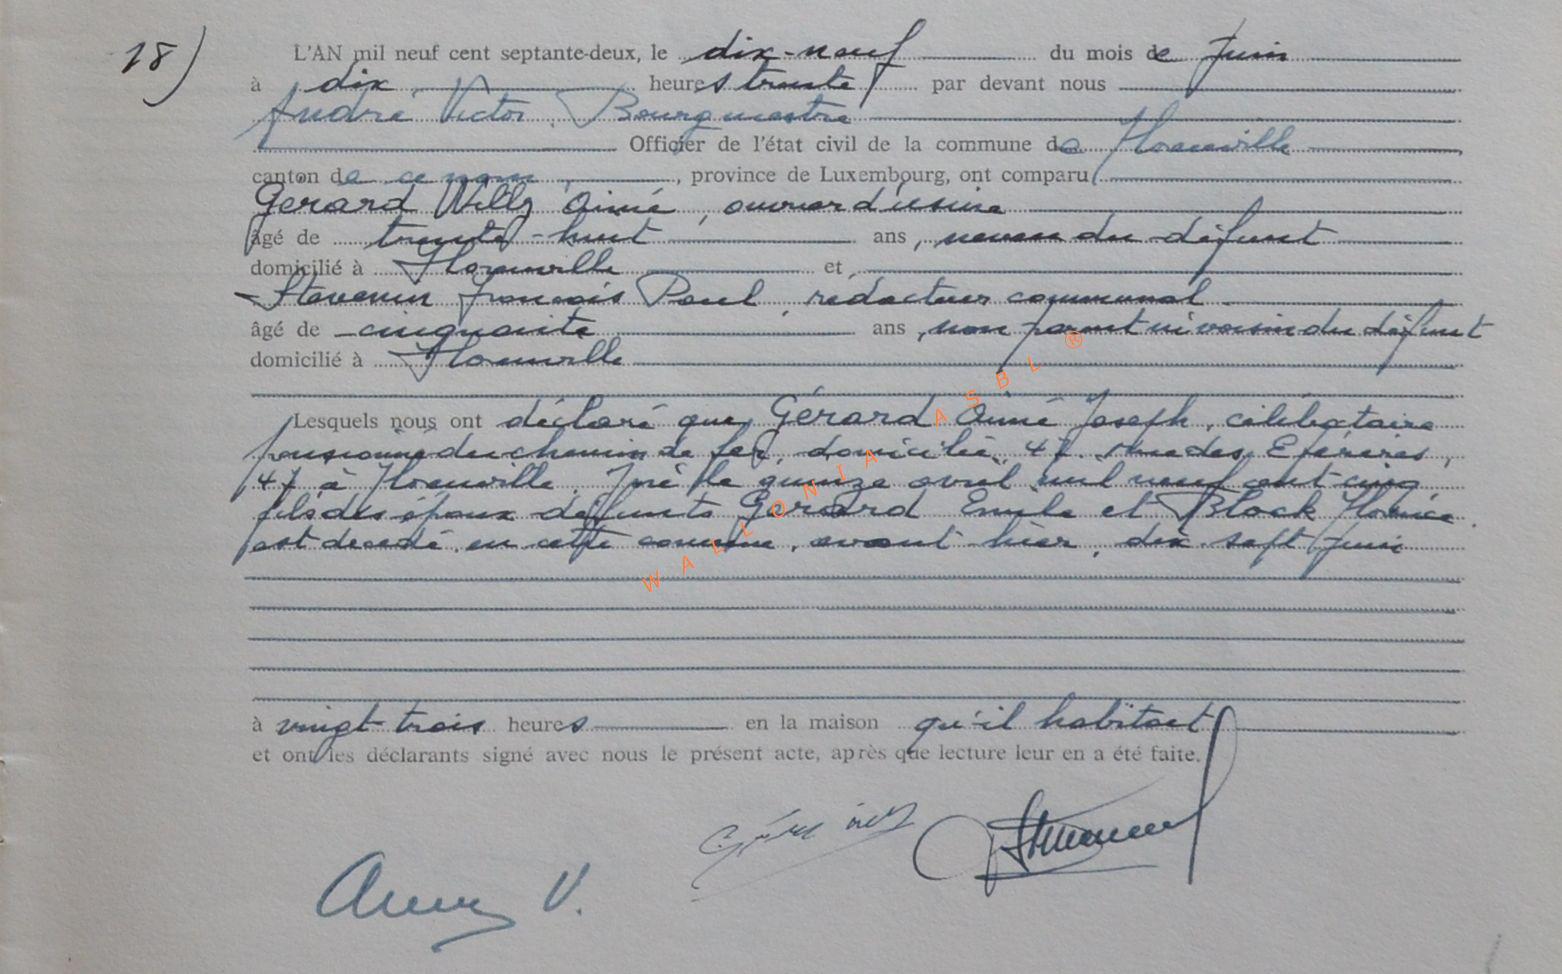 18)
L'AN mil neuf cent septante-deux, le dix-neuf du mois de Juin
à dix heures trente par devant nous
André Victor, Bourgmestre
Officier de l'état civil de la commune de Florenville
canton de ce nom, province de Luxembourg, ont comparu
Gérard Willy Aimé, ouvrier d'usine
âgé de trente-huit ans, neveu du défunt
domicilié à Florenville et
Stevenin François Paul, rédacteur communal
âgé de cinquante ans, non parent ni voisin du défunt
domicilié à Florenville
Lesquels nous ont déclaré que Gérard Aimé Joseph, célibataire
pensionné du chemin de fer, domicilié, 47. rue des
47 à Florenville. Né le quinze avril mil neuf cent cinq
fils des époux défunts Gérard Emile et Block
est décédé en cette commune, avant hier, dix sept Juin
à vingt trois heures en la maison qu'il habitait
et ont les déclarants signé avec nous le présent acte, après que lecture leur en a été faite.
WALLONIA ASBL ®
V.